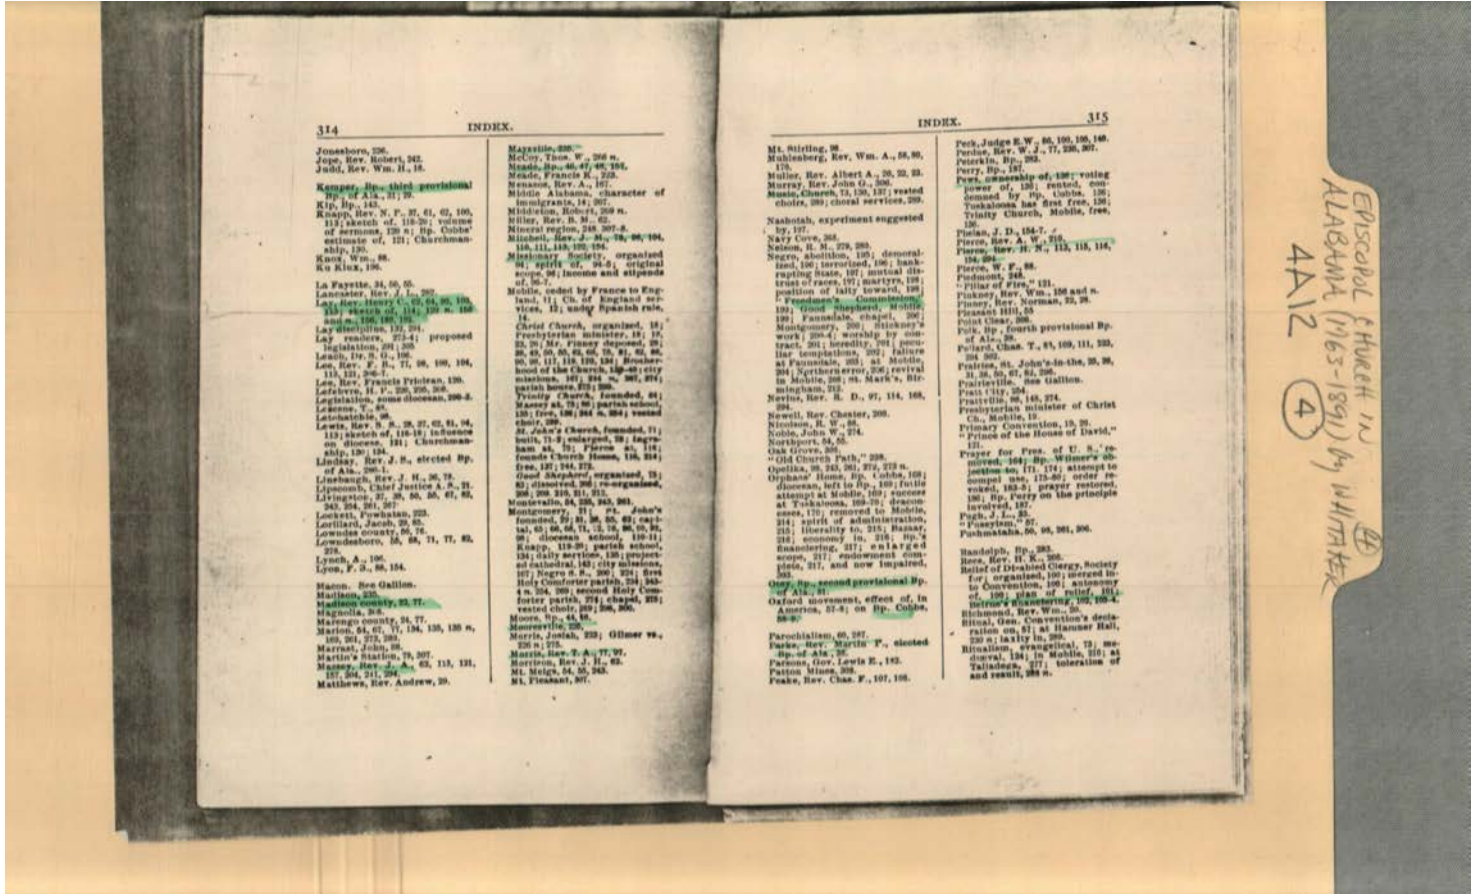 314
INDEX.
Jonesboro, 236.
Jope, Rev. Robert, 242.
Judd, Rev. Wm. H., 18.
Kemper, Bp., third provisional
Bp. of Ala., 31; 29.
Kip, Bp., 143.
Knapp, Rev. N. P., 37, 61, 62, 100,
113; sketch of, 118-20; volume
of sermons, 120 n; Bp. Cobbs'
estimate of, 121; Churchman-
ship, 130.
Knox, Wm., 88.
Ku Klux, 196.
La Fayette, 34, 50, 55.
Lancaster, Rev. J. L.,
Lay, Rev. Henry C., 62, 64,
sketch of, 114;
Lay discipline, 132, 291.
Lay readers, 273-4; proposed
legislation,
Leach, Dr. S. G., 106.
Lee, Rev. F. B., 77, 98, 100, 104,
113, 121,
Lee, Rev. Francis Prioleau, 120.
Lefebvre, H. P.,
Legislation, some diocesan,
Letohatchie, 98.
Lewis, Rev. S. S., 28, 37, 62, 81, 94,
113; sketch of, 116-18; influence
on diocese, 121; Churchman-
ship, 130; 134.
Lindsay, Rev. J. S., elected Bp.
of Ala.,
Linebaugh, Rev. J. H., 36, 78.
Lipscomb, Chief Justice A. S., 21.
Livingston, 37, 38, 50, 55, 67, 82,
243, 254, 261, 267
Lockett, Powhatan, 223.
Lorillard, Jacob, 28, 65.
Lowndes county, 56, 76.
Lowndesboro, 55, 68, 71, 77, 82,
278.
Lynch, A., 106.
Lyon, F. S., 88, 154.
Macon. See Gallion.
Madison, 235.
Madison county, 22, 77.
Magnolia, 308.
Marengo county, 24, 77.
Marion, 54, 67, 77, 134, 135, 138 n,
163, 261, 273, 283.
Marrast, John, 88.
Martin's Station, 79, 307.
Massey, Rev. J. A., 62, 113, 121,
157, 204, 241, 294.
Matthews, Rev. Andrew, 29.
Maysville, 235.
McCoy, Thos. W., 266 n.
Meade, Bp., 46, 47, 48, 151.
Meade, Francis K., 223.
Menasos, Rev. A., 167.
Middle Alabama, character of
immigrants, 14; 207.
Middleton, Robert, 269 n.
Miller, Rev. B. M., 62.
Mineral region, 248, 307-8.
Mitchell, Rev. J. M., 78, 98, 104,
110, 111, 113, 122, 154.
Missionary Society, organized
94; spirit of, 94-5; original
scope, 96; income and stipends
of, 96-7.
Mobile, ceded by France to Eng-
land, 11; Ch. of England ser-
vices, 12; under Spanish rule,
14.
Christ Church, organized, 18;
Presbyterian minister, 18; 19,
Mr. Pinney deposed,
Brother-
hood of the Church, city
missions, 167;
parish house,
Trinity Church, founded, 84;
Massey at, parish school,
135; free, vested
choir, 289.
St. John's Church, founded, 71;
built, 71-2; enlarged, Ingra-
ham at, 75; Pierce at, 116;
founds Church Home,
free, 137; 244, 272.
Good Shepherd, organized,
dissolved, re-organized,
Montevallo, 54, 235, 243, 261.
Montgomery, 21; St. John's
founded,
diocesan school, 110-11;
Knapp, 119-20; parish school,
134; daily services, 135; project-
ed cathedral, 143; city missions,
167; Negro S. S., 200; 224; first
Holy Comforter parish, 234; 243-
4 n. 254, 269; second Holy Com-
forter parish, 274; chapel, 278;
vested choir,
Moore, Bp., 44, 46.
Mooresville, 235.
Morris, Josiah, 223; Gilmer vs.,
226 n; 275.
Morris, Rev. T. A., 77, 97.
Morrison, Rev. J. H., 62.
Mt. Meigs, 54, 55, 243.
Mt. Pleasant, 307.
INDEX.
315
Mt. Stirling, 98.
Muhlenberg, Rev. Wm. A., 58, 80,
178.
Muller, Rev. Albert A., 20, 22, 23.
Murray, Rev. John G., 306.
Music, Church, 73, 130, 137; vested
choirs, 289; choral services, 289.
Nashotah, experiment suggested
by, 197.
Navy Cove, 308.
Nelson, R. M., 279, 280.
Negro, abolition, 195; demoral-
ized, 196; terrorized, 196; bank-
rupting State, 197; mutual dis-
trust of races, 197; martyrs, 198;
position of laity toward, 198;
"Freedmen's Commission,"
199; Good Shepherd, Mobile,
199; Faunsdale, chapel, 200;
Montgomery, 200; Stickney's
work; 200-4; worship by con-
tract, 201; heredity, 201; pecu-
liar temptations, 202; failure
at Faunsdale, 203; at Mobile,
204; Northern error, 206; revival
in Mobile, 208; St. Mark's, Bir-
mingham, 212.
Nevius, Rev. R. D., 97, 114, 168,
294.
Newell, Rev. Chester, 200.
Nicolson, R. W., 88.
Noble, John W., 274.
Northport, 54, 55.
Oak Grove, 308.
"Old Church Path," 238.
Opelika, 98, 243, 261, 272, 273 n.
Orphans' Home, Bp. Cobbs, 168;
diocesan, left to Bp., 169; futile
attempt at Mobile, 169; success
at Tuskaloosa, 169-70; deacon-
esses, 170; removed to Mobile,
214; spirit of administration,
215; liberality to, 215; Bazaar,
216; economy in, 216; Bp.'s
financiering, 217; enlarged
scope, 217; endowment com-
plete, 217, and now impaired,
303.
Otey, Bp., second provisional Bp.
of Ala., 31.
Oxford movement, effect of, in
America, 57-8; on Bp. Cobbs,
58-9.
Parochialism, 60, 287.
Parks, Rev. Martin P., elected
Bp. of Ala., 38.
Parsons, Gov. Lewis E., 182.
Patton Mines, 308.
Peake, Rev. Chas. F., 107, 108.
Peck, Judge E. W., 86, 100, 106, 148.
Perdue, Rev. W. J., 77, 236, 307.
Peterkin, Bp., 283.
Perry, Bp., 187.
Pews, ownership of, 136; voting
power of, 136; rented, con-
demned by Bp. Cobbs, 136;
Tuskaloosa has first free, 136;
Trinity Church, Mobile, free,
136.
Phelan, J. D., 154-7.
Pierce, Rev. A. W., 210.
Pierce, Rev. H. N., 113, 115, 116,
154, 294.
Pierce, W. F., 88.
Piedmont, 248.
"Pillar of Fire," 121.
Pinkney, Rev. Wm., 156 and n.
Pinney, Rev. Norman, 22, 28.
Pleasant Hill, 55
Point Clear, 308.
Polk, Bp., fourth provisional Bp.
of Ala., 39.
Pollard, Chas. T., 85, 109, 111, 223,
Prairies, St. John's-in-the,
Prairieville. See Gallion.
Pratt City, 254.
Prattville, 98, 148, 274.
Presbyterian minister of Christ
Ch., Mobile, 19.
Primary Convention, 19, 20.
"Prince of the House of David,"
121.
Prayer for Pres. of U. S., re-
moved, 164; Bp. Wilmer's ob-
jection to, 171, 174; attempt to
compel use, 175-80; order re-
voked, 183-5; prayer restored,
186; Bp. Perry on the principle
involved, 187.
Pugh, J. L., 83.
"Puseyism," 57.
Pushmataha, 50, 98, 261, 306.
Randolph, Bp., 283.
Rees, Rev. H. K., 208.
Relief of Disabled Clergy, Society
for; organized, 100; merged in-
to Convention, 190; autonomy
of, 190; plan of relief, 191;
financiering, 192,
Richmond, Rev. Wm., 20.
Ritual, Gen. Convention's decla-
ration on, 57; at Hamner Hall,
230 n; laxity in, 289.
Ritualism, evangelical, 73; me-
diæval, 124; in Mobile, 218; at
Talladega, 277; toleration of
and result, 288 n.
EPISCOPOL CHURCH IN
ALABAMA (1763-1891) by WHITAKER
4A12
4